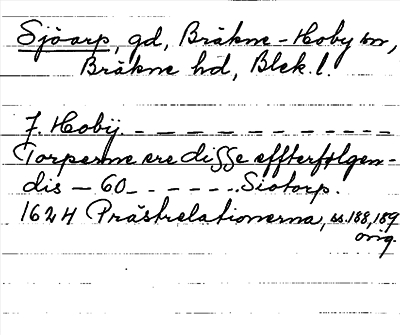 Sjöarp, gd, Bräkne-Hoby sn,
Bräkne hd, Blek. l.
J. Hobÿ - - - - - - - - - - - - -
Torperne ere disse effterfølgen-
dis - 60 - - - - - - Siøtorp.
1624 Prästrelationerna, ss. 188, 189
orig.